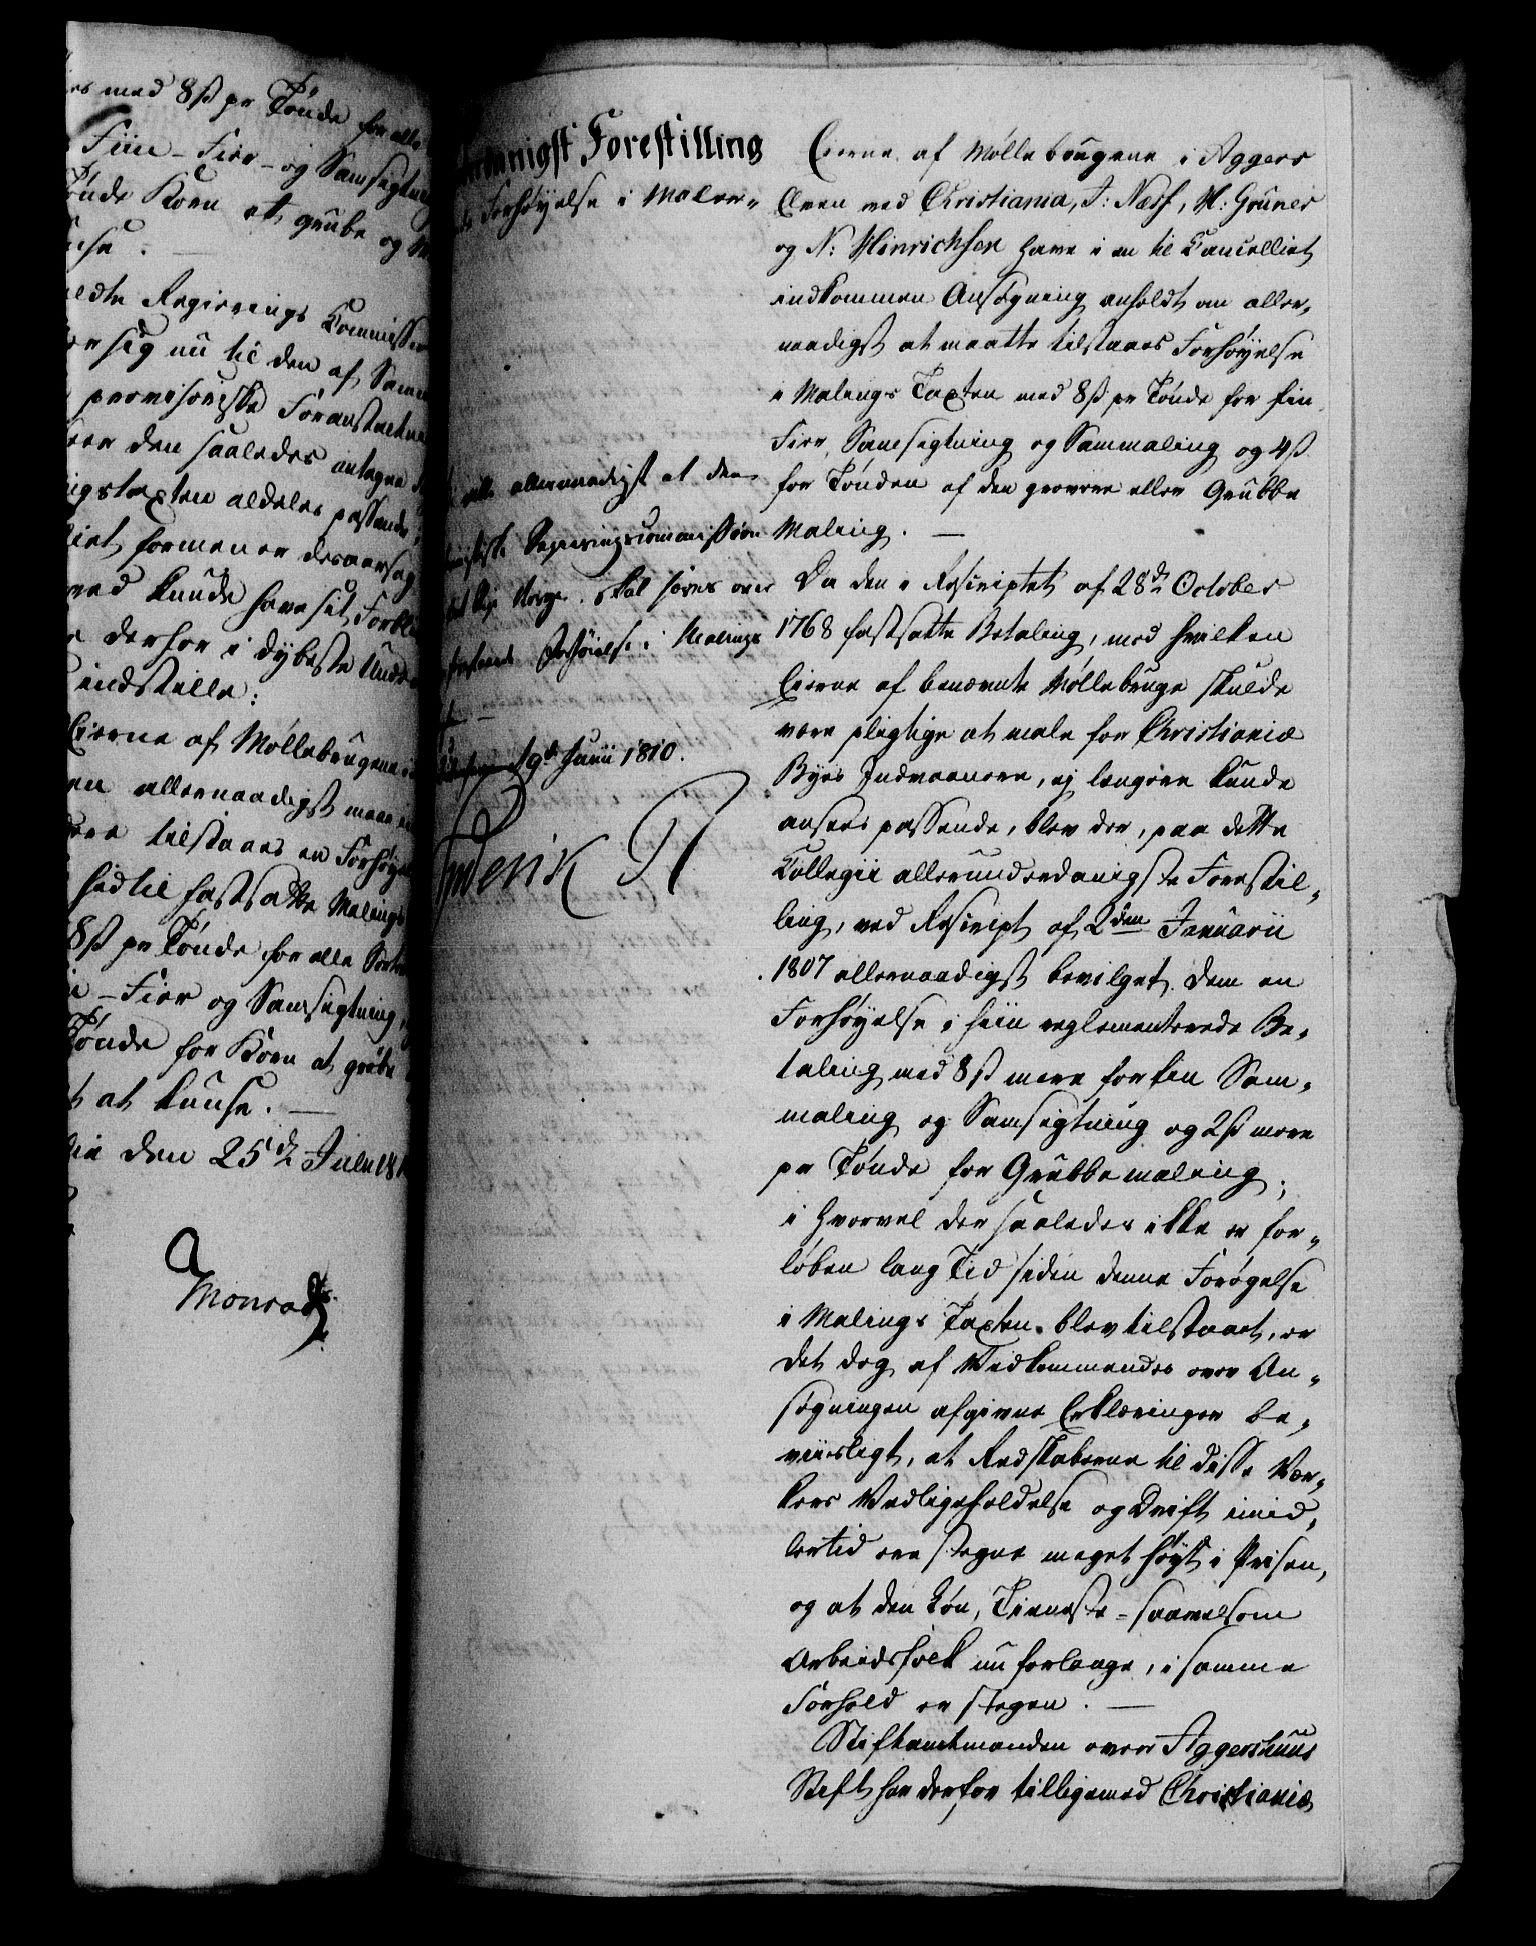 med 8 ß pr Tønde for alle
Fiin-Fier- og Samsigtning
Tønde Korn at grube og
ldte Regierings Commission
sig nu til den af Samme
provisoriske Foranstaltning
den saaledes antagne
ngstaxten aldeles passende,
formener desaarsag
ved kunde have sit Forbli
derfor i dybeste Under
indstille:
Eierne af Møllebrugene i
en allernaadigst maae
tilstaaes en Forhøyelse
hidtil fastsatte Malings
8 ß pr Tønde for alle Sorter
i-Fier og Samsigtning,
Tønde for Korn at grube
at knuse. —
den 25de July 18
Monrad
danigst Forestilling
Forhøyelse i Maler-
ville allernaadigst at den
Regieringscommission
Norge skal høres over
Forhøielse i Malings
19de Junii 1810.
Frederik R
Eierne af Møllebrugene i Aggers
Elven ved Christiania, J: Næss, M: Gruner
og N: Hinrichsen have i en til Cancelliet
indkommen Ansøgning anholdt om aller-
naadigst at maatte tilstaaes Forhøyelse
i Malings Taxten med 8 ß pr Tønde for fiin
Fier, Samsigtning og Sammaling og 4 ß
for Tønden af den grovere eller Grubbe
Maling. —
Da den i Rescriptet af 28de October
1768 fastsatte Betaling, mod hvilken
Eierne af benævnte Møllebruge skulde
være pligtige at male for Christianiæ
Byes Indvaanere, ej længere kunde
ansees passende, blev der, paa dette
Collegii allerunderdanigste Forestil-
ling, ved Rescript af 2den Januarii
1807 allernaadigst bevilget dem en
Forhøyelse i hiin reglementerede Be-
taling med 8 ß mere for fiin Sam-
maling og Samsigtning og 2 ß mere
pr Tønde for Grubbemaling;
i hvorvel der saaledes ikke er for-
løben lang Tid siden denne Forøgelse
i Malings Taxten blev tilstaaet, er
det dog af Vedkommendes over An-
søgningen afgivne Erklæringer be-
viisligt, at Redskaberne til disse Vær-
kers Vedligeholdelse og Drift imid-
lertid ere stegne meget høyt i Prisen,
og at den Løn, Tieneste- saavelsom
Arbeidsfolk nu forlange, i samme
Forhold er stegen. —
Stiftamtmanden over Aggershuus
Stift har derfor tilligemed Christianiæ